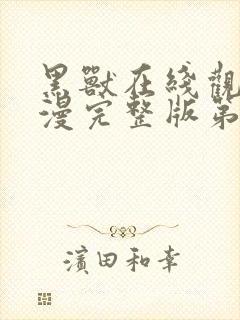 黑獸在綫觀
漫完整版第
濱田和幸